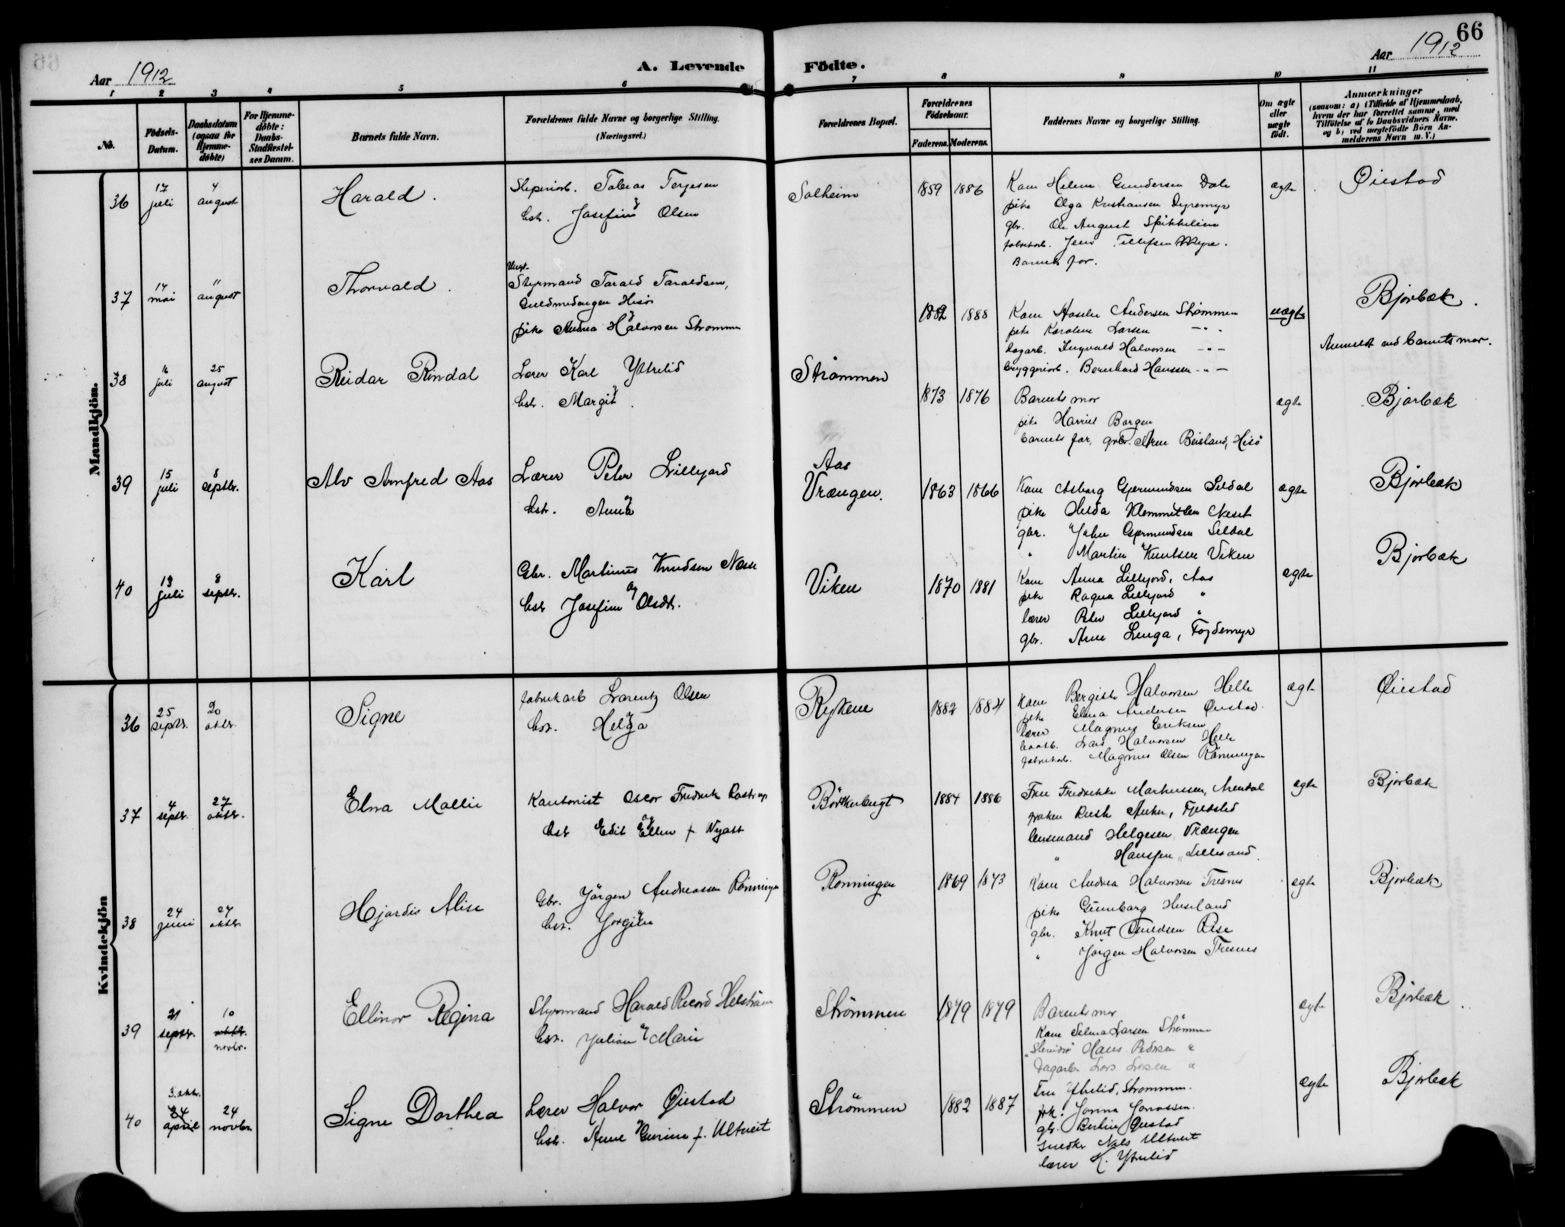 66
Aar 1912
A. Levende Födte.
Aar 1912
1 2 3 4 5 6 7 8 9 10 11
No.
Födsels-Datum.
Daabsdatum (ogsaa for Hjemme-döbte)
For Hjemme-döbte: Daabs-Stadfæstel-ses Datum.
Barnets fulde Navn.
Forældrenes fulde Navne og borgerlige Stilling. (Næringsvei.)
Forældrenes Bopæl.
Forældrenes Födselsaar.
Faderens. Moderens.
Faddernes Navne og borgerlige Stilling.
Om ægte eller uægte födt.
Anmærkninger (saasom: a) i Tilfælde af Hjemmedaab, hvem der har forrettet samme, med Tilföielse af to Daabsvidners Navne, og b) ved uægtefödte Börn An-melderens Navn m. V.)
Mandkjön.
36
17 juli
4 august
Harald.
Sliperiarb. Tobias Terjesen
hst. Josefine Olsen
Solheim
1859 1886
Kone Helene Gundersen Dale
pike Olga Kristiansen Dyremyr
gbr. Ole August
fabrikarb. Jens Tellefsen
Barnets far.
ægte
Øiestad
37
14 mai
11 august
Thorvald.
Ungk. Styrmand Tarald Taraldsen,
Guldmedengen Hisö
og
pike Anna Halvorsen Strømmen
1882 1888
Kone Aaselie Andersen Strømmen
pike Karoline Larsen -"-
dagarb. Ingvald Halvorsen -"-
bryggeriarb. Bernhard Hanssen -"-
uægte
Bjorbæk.
Anmeldt ved barnets mor.
38
16 juli
25 august
Reidar Rindal
Lærer Karl Ytrelid
hst. Margit.
Strømmen
1873 1876
Barnets mor
pike Harriet Borgen
barnets far, gbr. Arne Beisland, Hisö
ægte
Bjorbæk
39
15 juli
8 septbr.
Alv Arnfred Aas
Lærer Peter Lillejord
hst. Anna
Aas
Vrængen.
1863 1866
Kone Asborg Gjermundsen Seldal
pike Hilda Klemmetsen Neset
gbr. John Gjermundsen Seldal
" Martin Knutsen Viken
ægte
Bjorbæk
40
13 juli
8 septbr.
Karl
Gbr. Martinus Knudsen Næss
og
hst. Josefine Olsdt.
Viken
1870 1881
Kone Anna Lillejord, Aas
pike Ragna Lillejord "
lærer Peter Lillejord "
gbr. Arne Lenga, Fojdemyr
ægte
Bjorbæk
Kvindekjön
36
25 septbr.
20 oktbr.
Signe
fabrikarb Lorentz Olsen
hst. Helga
Rykene
1882 1884
Kone Bergitte Halvorsen Helle
pike Elina Andersen Øiestad.
lærer Magnus Eriksen
Lars Halvorsen Helle
fabrikarb. Magnus Olsen Rønningen
ægte
Øiestad
37
4 septbr.
27 oktbr.
Elna Mallie
Kontorist Oscar Fredrik Rostrup
og
hst Edit Ellen f. Wyatt
1884 1886
Fru Fredrikke Markussen, Arendal
frøken
lensmand Helgesen Vrængen
" Hanssen, Lillesand.
ægte
Bjorbæk
38
24 juni
27 oktbr
Hjørdis Alise
Gbr. Jørgen Andreassen Rönningen
hst. Jørgine
Ronningen
1869 1873
Kone Andrea Halvorsen Tresnes
pike Gunborg Huseland
gbr. Knut Osuldsen Rise
" Jørgen Halvorsen Tresnes
ægte
Bjorbæk
39
21 septbr.
10 oktbr. novbr.
Ellinor Regina
Styrmand Harald Ricard Helström
hst. Juliane Marie
Strømmen
1879 1879
Barnets mor
Kone Selma Larsen Strømmen
Hans Pedersen "
Dagarb. Lars Larsen "
ægte
Bjorbæk.
40
3. oktbr.
24 april
24 novbr
Signe Dorthea
Lærer Halvor Øiestad
og
hst. Anne Gurine f. Ultveit
Strømmen
1882 1887
Fru Ytrelid, Strømmen.
frk. Jonna Jonassen
gbr. Berthin Øiestad
snedker Nils Ultveit
lærer K. Ytrelid
ægte
Bjorbæk